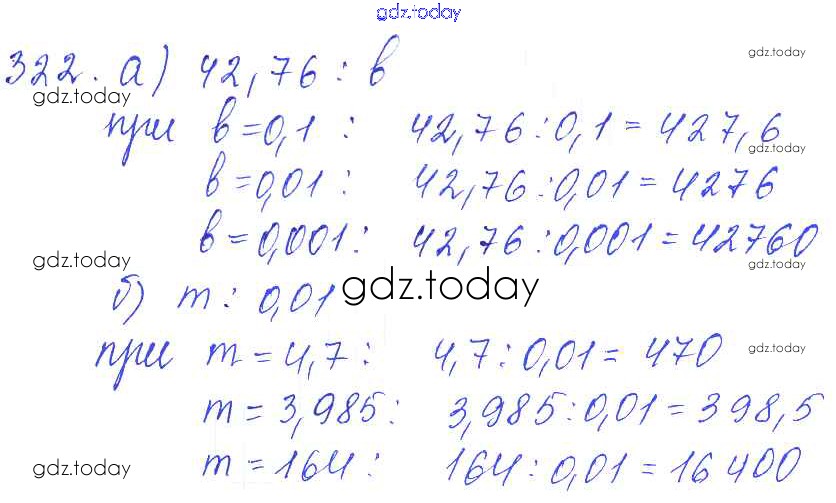 gdz.today
322. а) 42,76 : в
gdz.today
gdz.today
при в=0,1 : 42,76:0,1=427,6
gdz.today
в=0,01 : 42,76:0,01=4276
в=0,001: 42,76:0,001=42760
gdz.today
gdz.today
б) m : 0,01
gdz.today
при m=4,7 : 4,7:0,01=470
gdz.today
m=3,985: 3,985:0,01=398,5
m=164: 164:0,01=16400
gdz.today
gdz.today